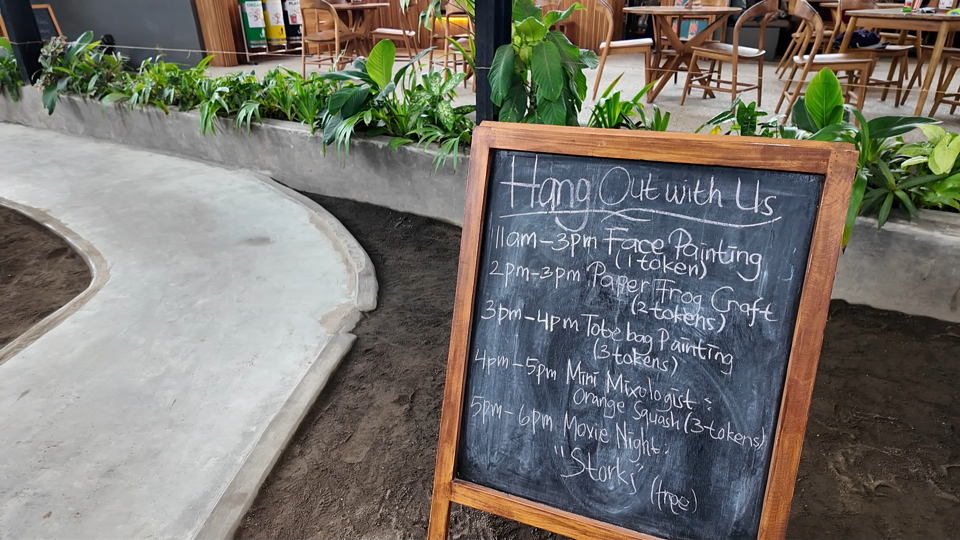 Hang Out with Us
11am-3pm Face Painting
(1 token)
2pm-3pm Paper Frog Craft
(2 tokens)
3pm-4pm Tote bag Painting
(3 tokens)
4pm-5pm Mini Mixologist:
Orange Squash (3 tokens)
5pm-6pm Movie Night:
"Storks" (free)